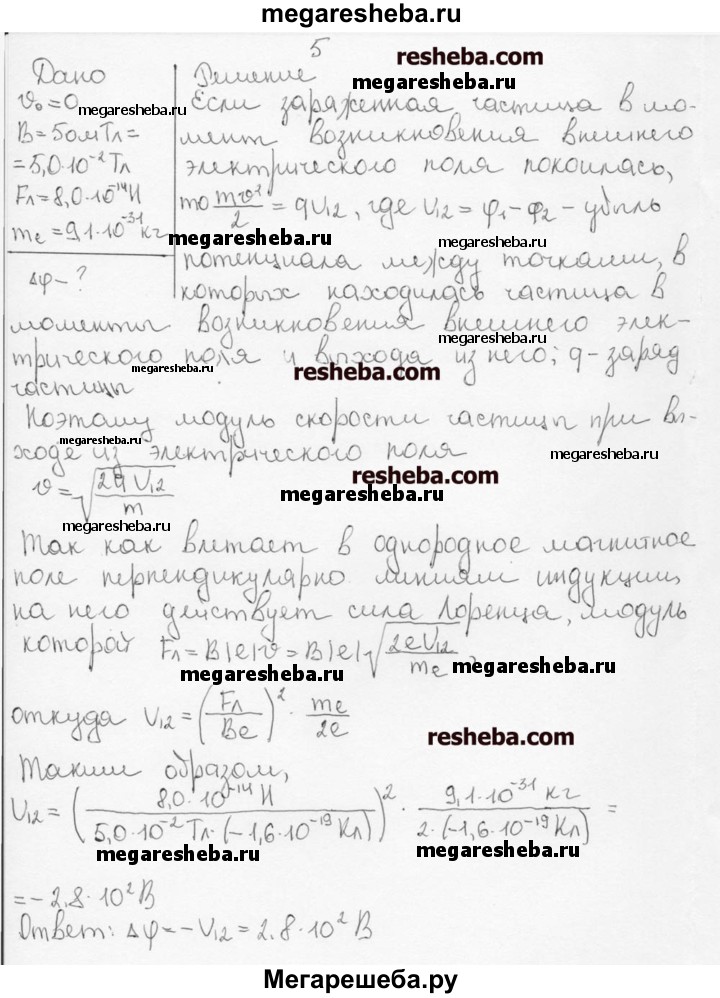 megaresheba.ru
5
resheba.com
Дано
v₀=0
B=50мТл=
=5,0·10⁻²Тл
Fл=8,0·10⁻¹⁴Н
mе=9,1·10⁻³¹кг
Δφ-?
Решение
megaresheba.ru
megaresheba.ru
Если заряженная частица в мо-
мент возникновения внешнего
megaresheba.ru
электрического поля покоилась,
то mv²/2 = qU₁₂, где U₁₂ = φ₁-φ₂ - убыль
megaresheba.ru
megaresheba.ru
потенциала между точками, в
которых находилась частица в
моменты возникновения внешнего элек-
трического поля и выхода из него; q - заряд
megaresheba.ru
megaresheba.ru
resheba.com
частицы
Поэтому модуль скорости частицы при вы-
ходе из электрического поля
megaresheba.ru
megaresheba.ru
resheba.com
v = √(2qU₁₂/m)
megaresheba.ru
megaresheba.ru
Так как влетает в однородное магнитное
поле перпендикулярно линиям индукции,
на него действует сила Лоренца, модуль
которой Fл = B|e|v = B|e|√(2eU₁₂/mе)
megaresheba.ru
megaresheba.ru
откуда U₁₂ = (Fл/Be)² · mе/2e
resheba.com
Таким образом,
U₁₂ = (8,0·10⁻¹⁴Н / 5,0·10⁻²Тл·(-1,6·10⁻¹⁹Кл))² · 9,1·10⁻³¹кг / 2·(-1,6·10⁻¹⁹Кл) =
megaresheba.ru
megaresheba.ru
=-2,8·10²В
Ответ: Δφ=-U₁₂=2.8·10²В
Мегарешеба.ру